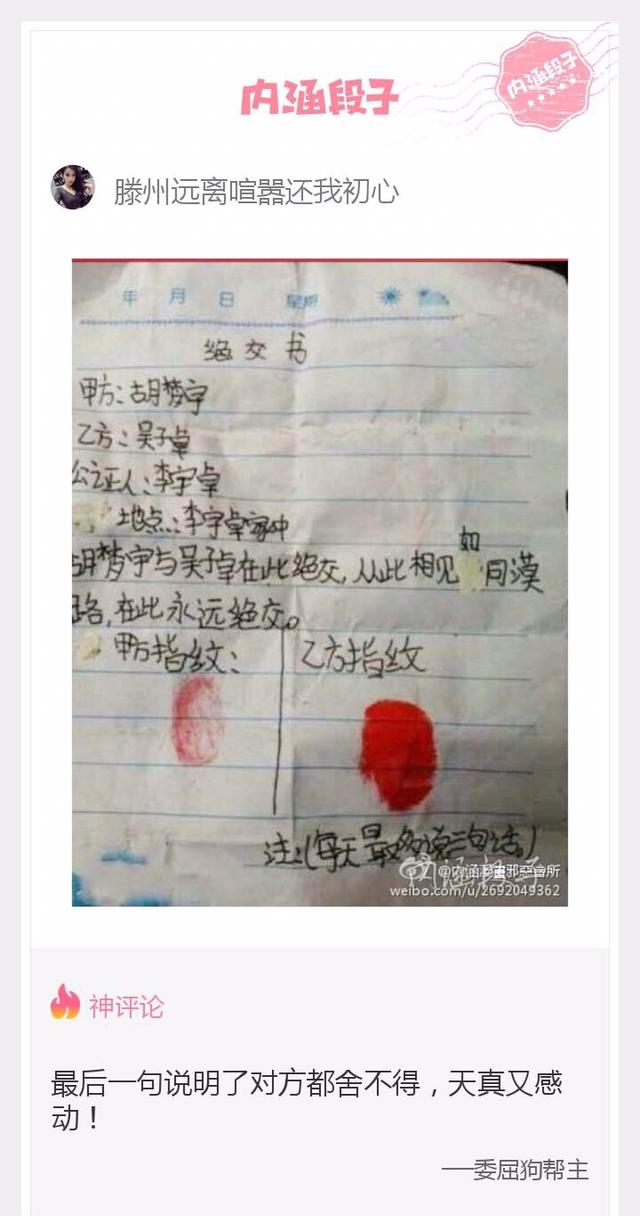 内涵段子
内涵段子
滕州远离喧嚣还我初心
年 月 日 星期
绝交书
甲方:胡梦宇
乙方:吴子卓
公证人:李宇卓
地点:李宇卓家中
胡梦宇与吴子卓在此绝交,从此相见如同漠
路,在此永远绝交。
甲方指纹:
乙方指纹
注:(每天最多说三句话。)
内涵段子
weibo.com/u/2692049362
神评论
最后一句说明了对方都舍不得,天真又感
动!
──委屈狗帮主